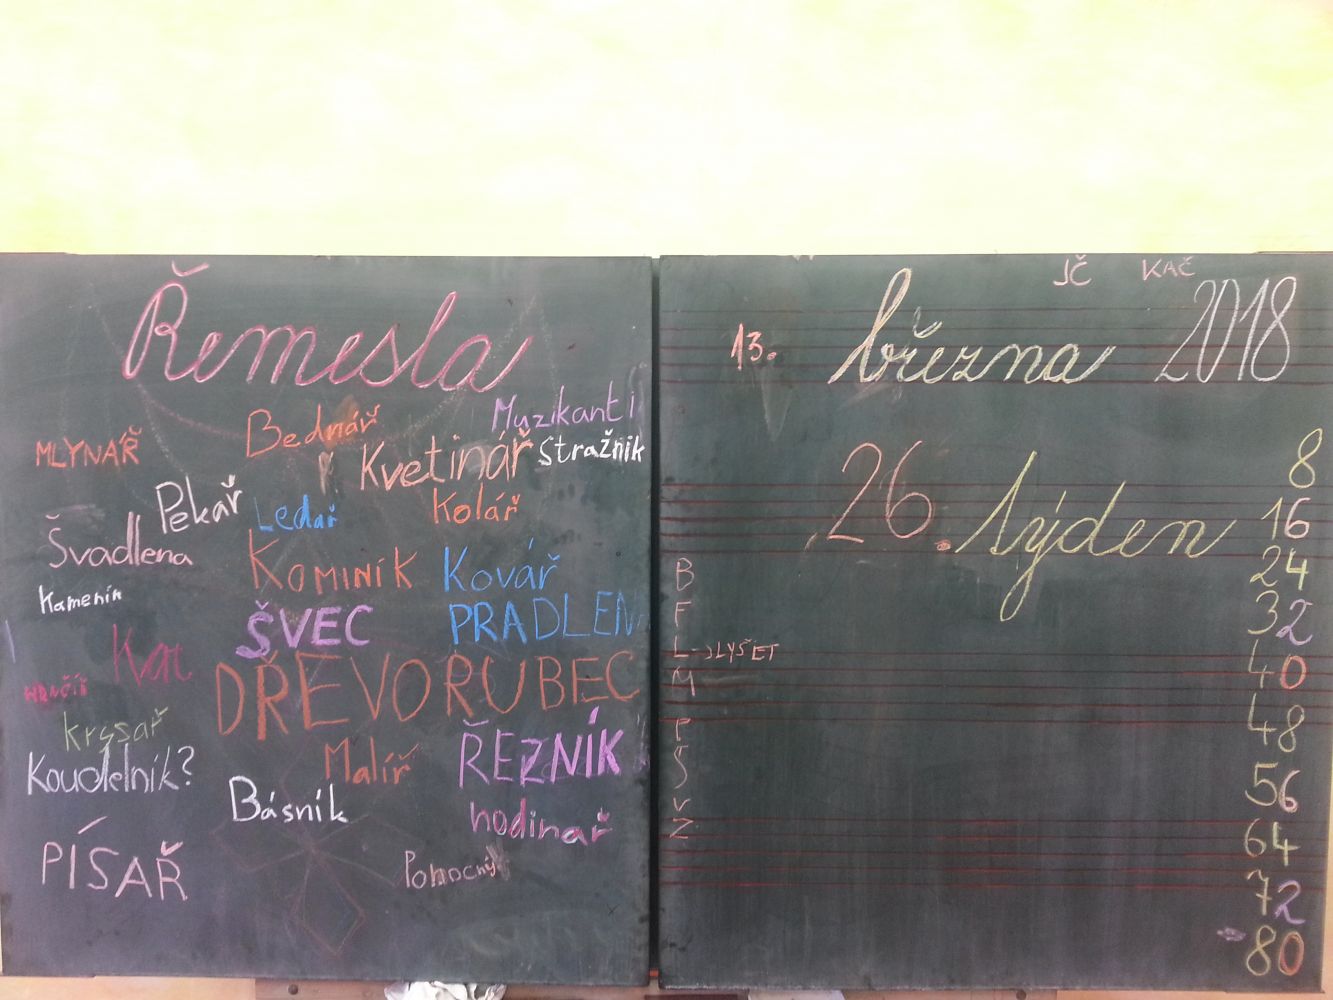 Řemesla
Muzikanti
Bednář
MLYNÁŘ
Kvetinář
Stražnik
Pekař
Ledař
Kolář
Švadlena
Kominík
Kovář
Kamenín
ŠVEC
PRADLEN
Kat
DŘEVORUBEC
HRNČÍŘ
krysař
Malíř
ŘEZNÍK
Koudelník?
Básník
hodinař
PÍSAŘ
Ponocný
JČ KAČ
13. března 2018
26. týden
8
16
24
32
40
48
56
64
72
80
B
F
L - SLYŠET
M
P
S
V
Z